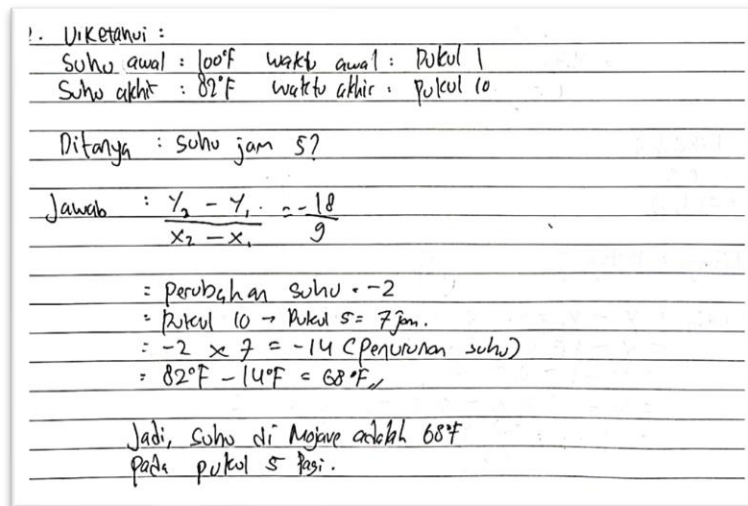 1. Diketahui :
Suhu awal : 100°F waktu awal : Pukul 1
Suhu akhir : 82°F waktu akhir : pukul 10
Ditanya : Suhu jam 5?
Jawab : Y₂ - Y₁ = -18
X₂ - X₁ 9
= perubahan suhu = -2
= Pukul 10 → Pukul 5 = 7 jam.
= -2 x 7 = -14 (Penurunan suhu)
= 82°F - 14°F = 68°F //
Jadi, Suhu di Mojave adalah 68°F
pada pukul 5 Pagi.